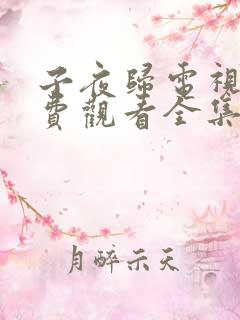 子夜歸電視
費觀看全集
月醉示天